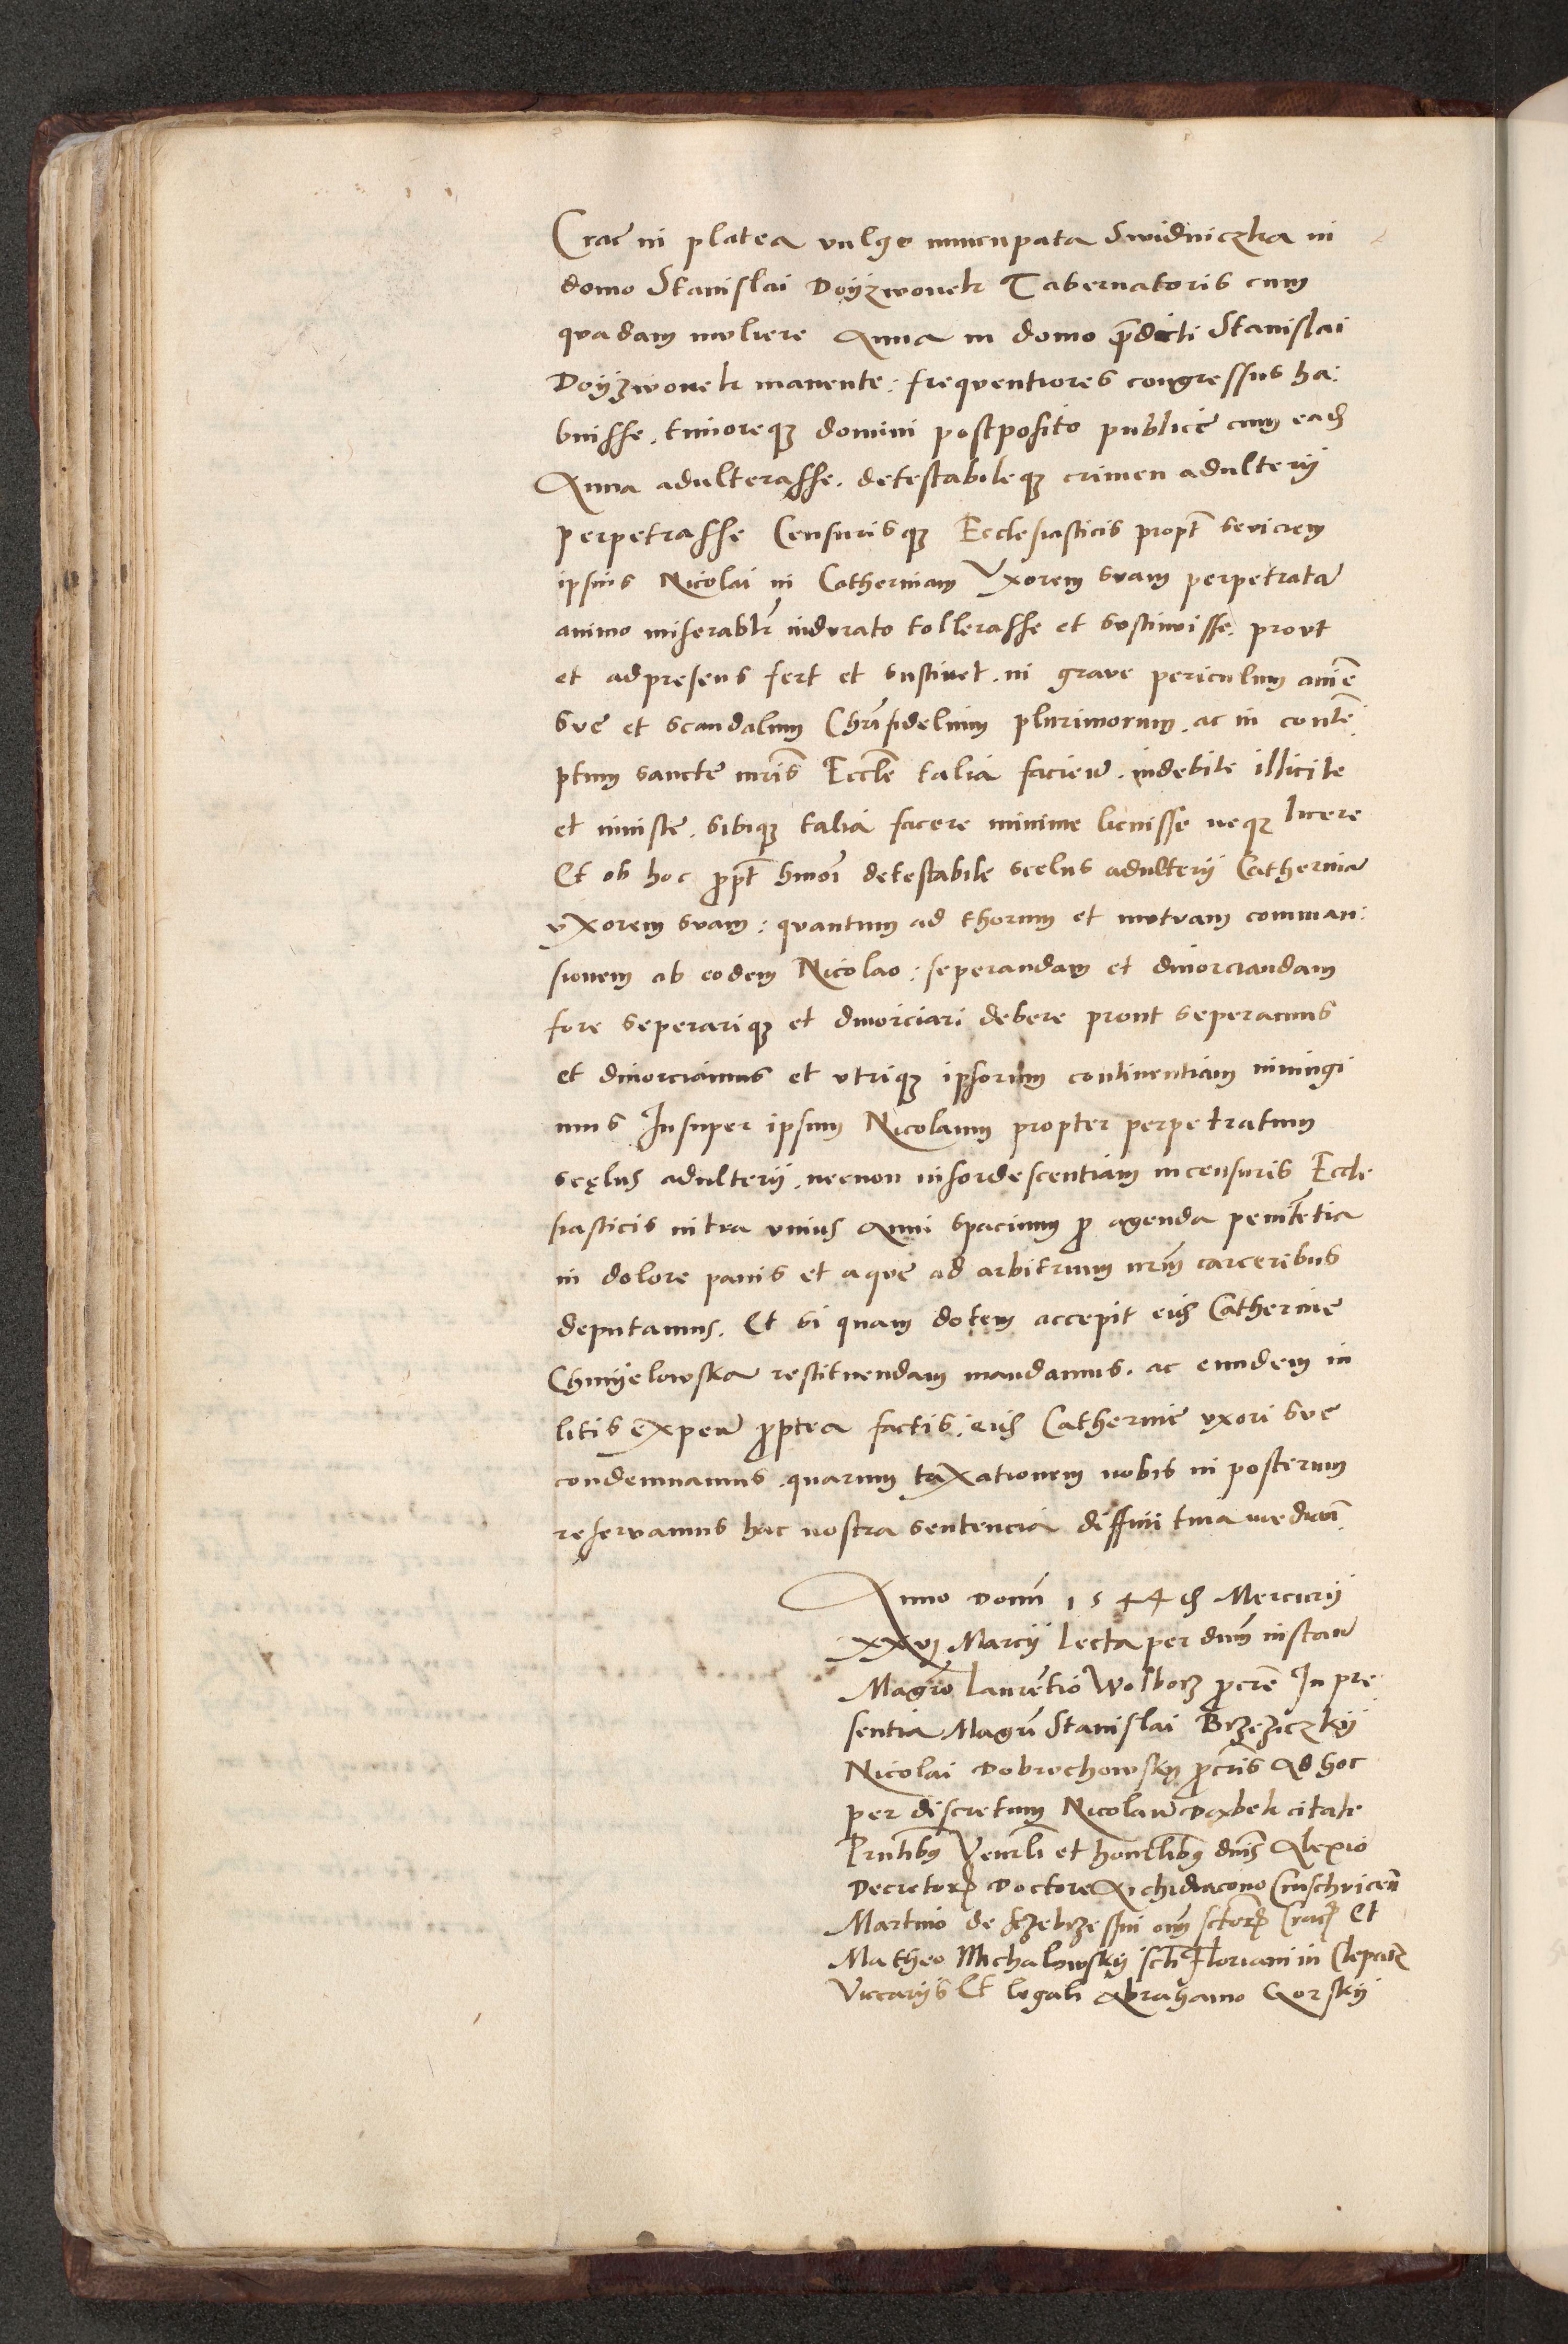 Crac̄ in platea vulgo nuncupata Swidniczka in
domo Stanislai Doyzwonek Tabernatoris cum
quadam muliere Anna in domo p̄dicti Stanislai
Doyzwonek manente: frequentiores congressus ha:
buisse. timoreqꝫ domini postposito publice cum eadē
Anna adulterasse. detestabileqꝫ crimen adulterij
perpetrasse Censurisqꝫ Ecclesiasticis propt̄ seviciem
ipsius Nicolai in Catherinam Vxorem suam perpetratā
animo miserablr̄ indurato tollerasse et sustinuisse. prout
et ad presens fert et sustinet. in grave periculum anīe
sue et scandalum Chrīfidelium plurimorum. ac in contē:
ptum sancte mr̄is Eccl̄e talia faciēn. indebite illicite
et iniuste. sibiqꝫ talia facere minime licuisse neqꝫ licere
Et ob hoc p̱pt̄ hmōi detestabile scelus adulterij Catherinā
vxorem suam: quantum ad thorum et mutuam comman:
sionem ab eodem Nicolao: seperandam et diuorciandam
fore seperariqꝫ et diuorciari debere prout seperamus
et diuorciamus et vtriqꝫ ipsorum continentiam iniungi
mus Insuper ipsum Nicolaum propter perpetratum
scęlus adulterij. necnon insordescentiam in censuris Eccle
siasticis intra vnius Anni spacium p̱ agenda penitētia
in dolore panis et aque ad arbitrium nr̄m carceribus
deputamus. Et si quam dotem accepit eiusdē Catherine
Chmyelowska restituendam mandamus. ac eundem in
litis expeñ p̱pterea factis. eidē Catherine vxori sue
condemnamus. quarum taxationem nobis in posterum
reservamus hac nostra sentencia diffinitiua mediañ.
Anno Domī 1544 die Mercurij
xxvj Marcij Lecta per dnm̄ instañ
Magrō Laurētio Wolborz p̱cr̄e In pre
sentia Magrī Stanislai Brzeziczkij
Nicolai Dobrochowsky p̱cr̄is Ad hoc
per discretum Nicolaū citate
Pn̄tibꝫ Venrl̄i et honorlibꝫ dn̄is Alexio
Decretorꝫ Doctore Archidiacono
Martino de Szczebrzeszin om̄ sctorꝫ Crac̄ Et
Matheo Michalowskij scti Floriani in Clepardꝫ
Vicarijs Et legali Abrahamo Gorskij